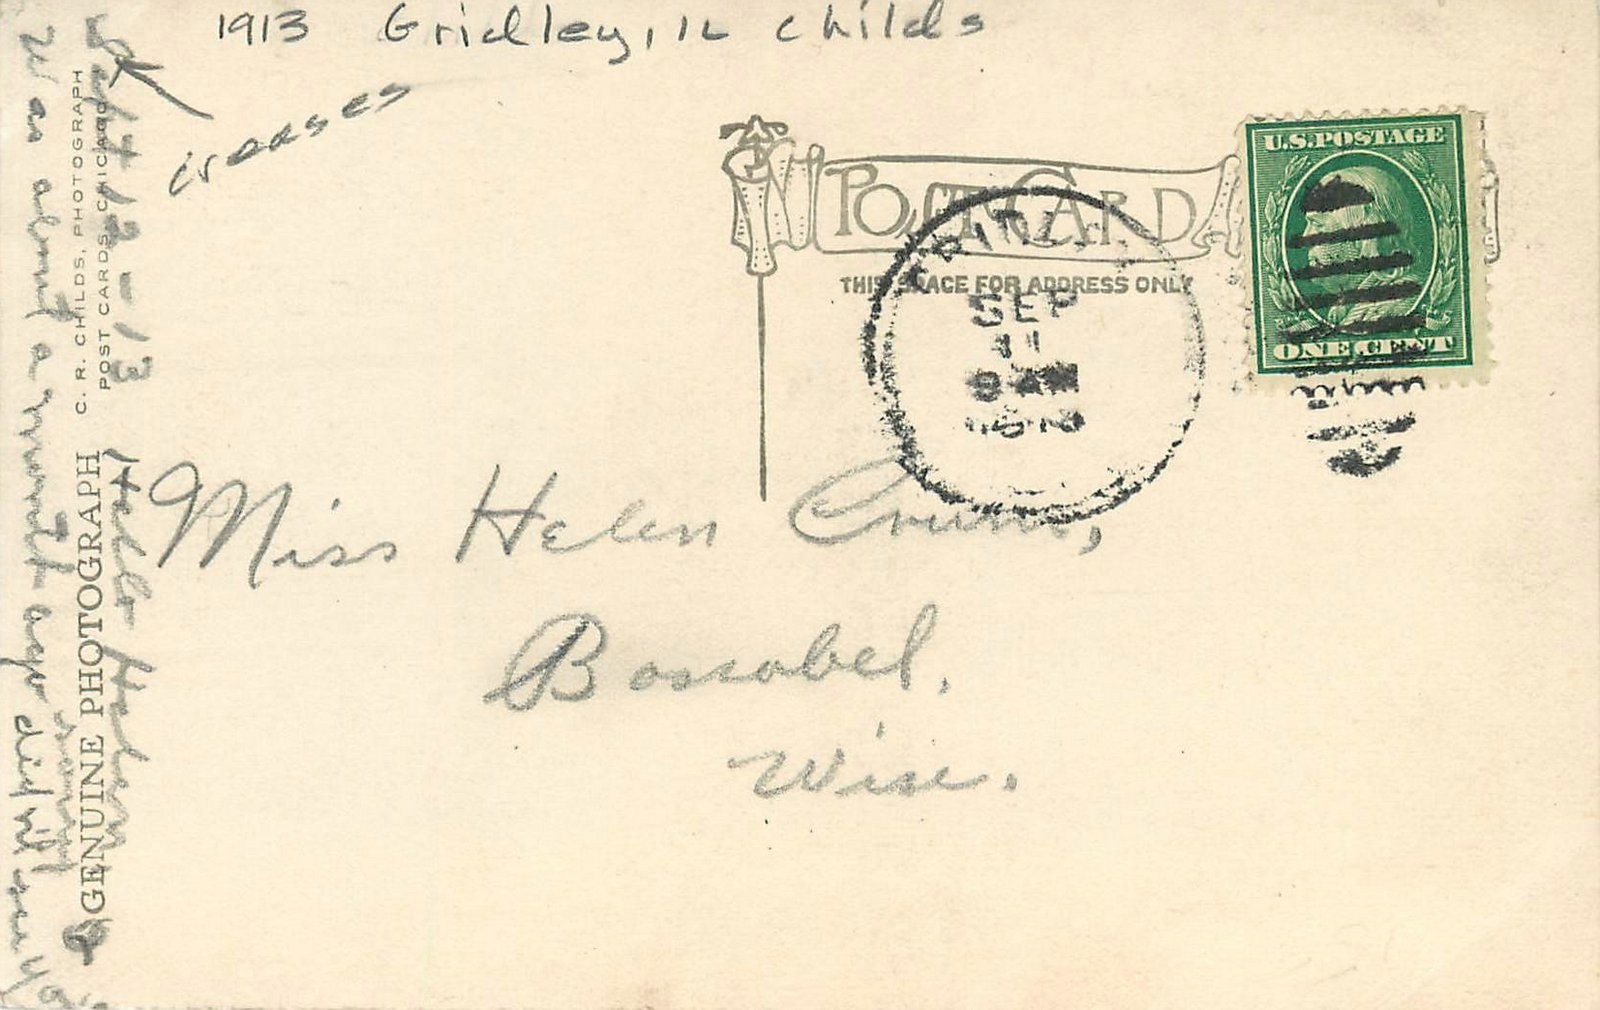 1913 Gridley, IL Childs
creases
POST CARD
THIS SPACE FOR ADDRESS ONLY
U.S. POSTAGE
ONE CENT
SEP
11
1913
Miss Helen Crum,
Boscobel,
Wise.
GENUINE PHOTOGRAPH
C. R. CHILDS, PHOTOGRAPH
POST CARDS, CHICAGO
Sept 12-13
Hello Helen
Was about a month ago did